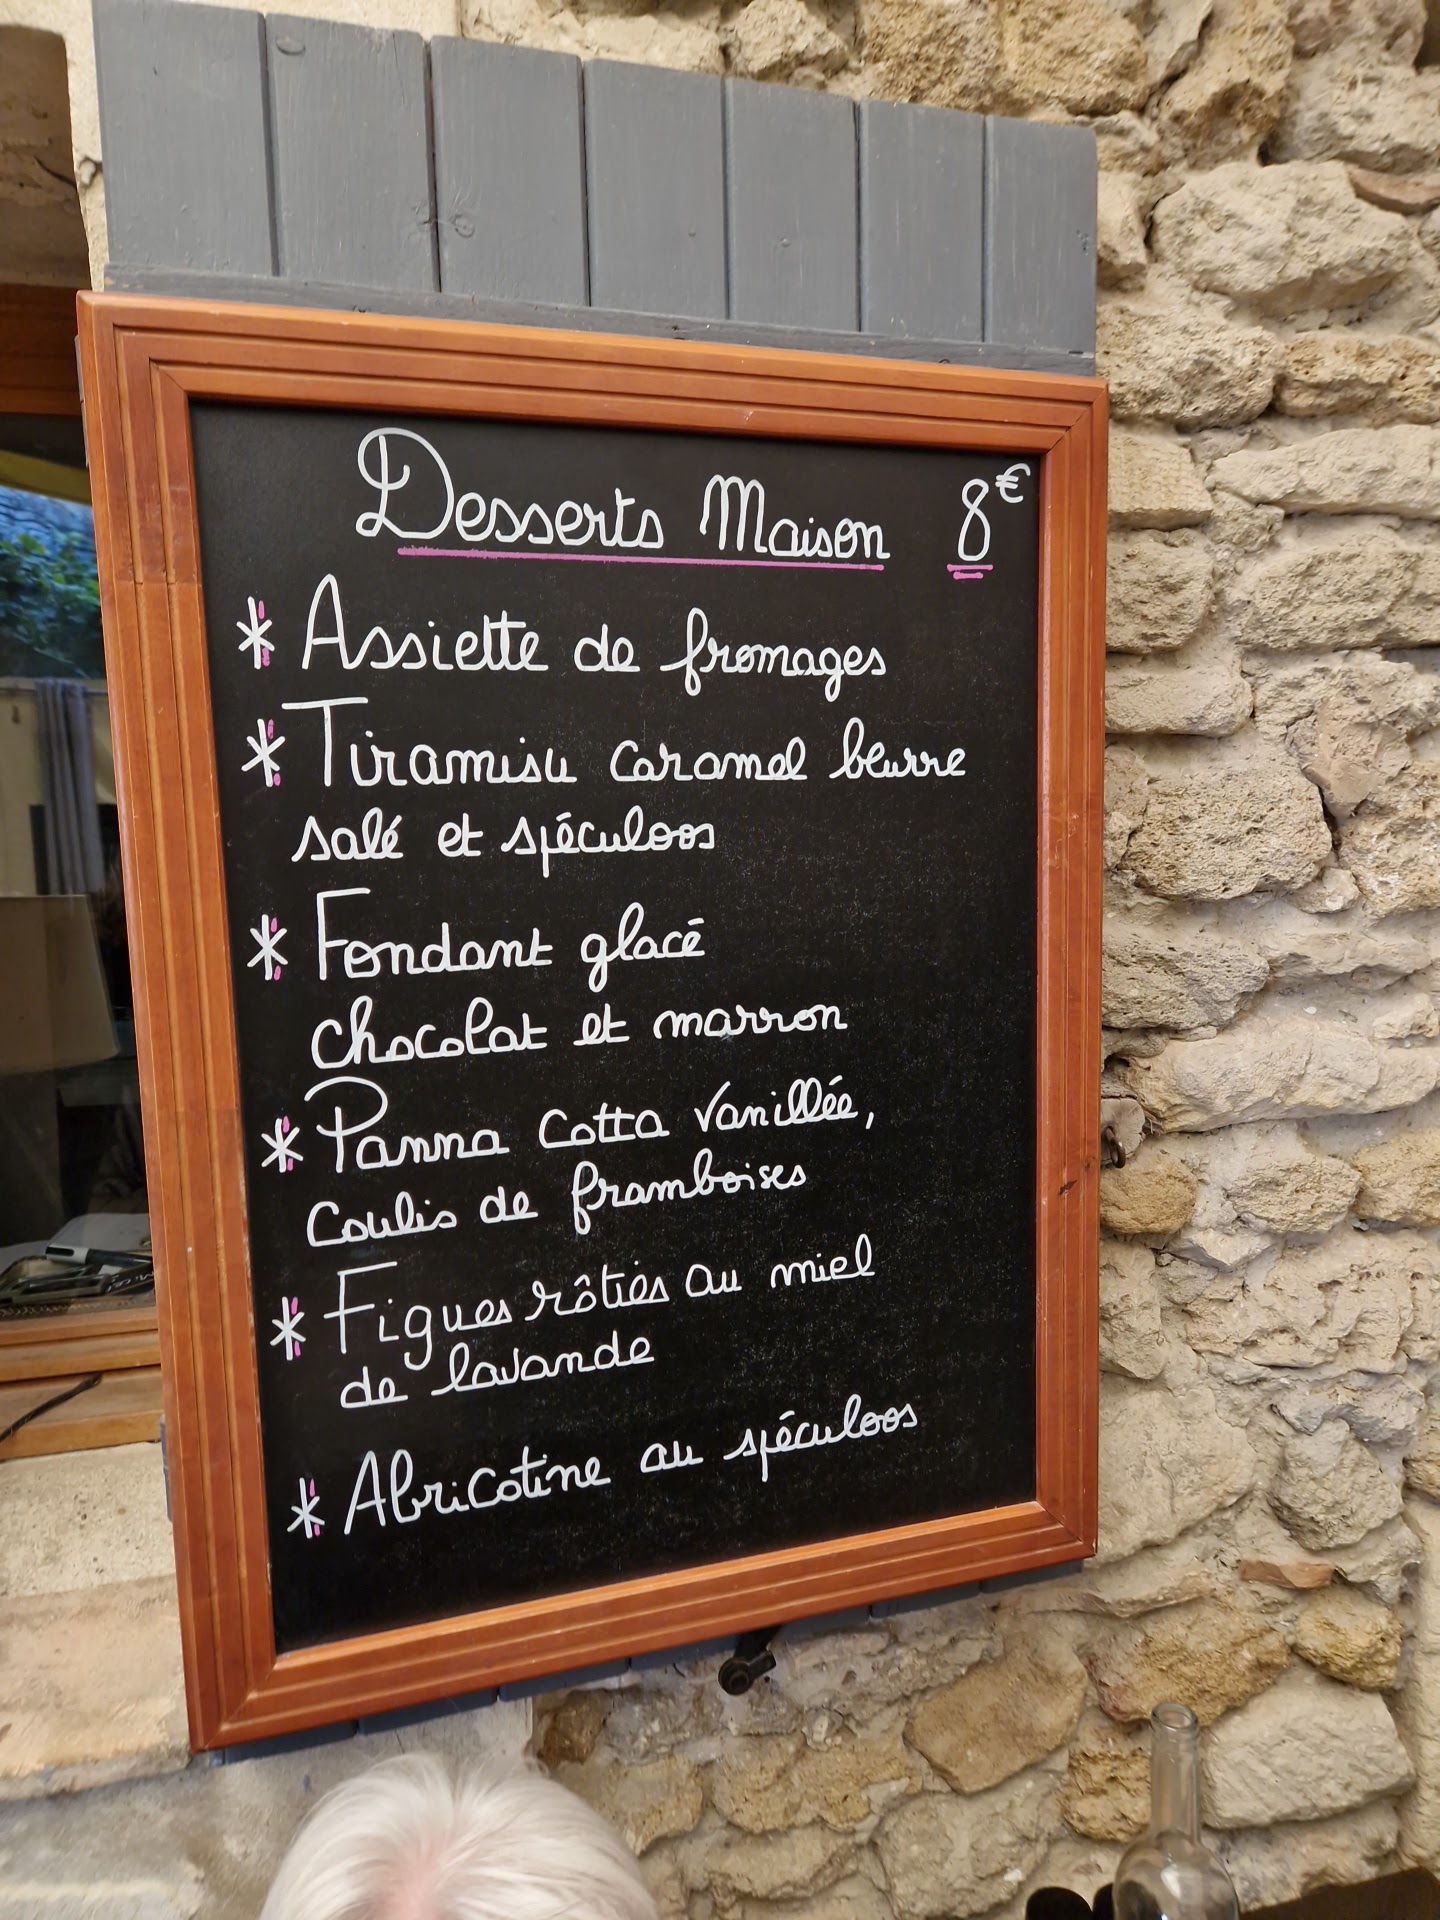 Desserts Maison 8€
* Assiette de fromages
* Tiramisu caramel beurre
salé et spéculoos
* Fondant glacé
chocolat et marron
* Panna cotta vanillée,
Coulis de framboises
* Figues rôties au miel
de lavande
* Abricotine au spéculoos